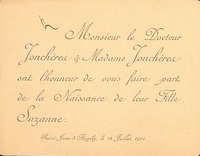 Monsieur le Docteur
Jonchères & Madame Jonchères
ont l'honneur de vous faire part
de la Naissance de leur Fille
Suzanne.
Saint-Jean-d'Angély, le 12 Juillet